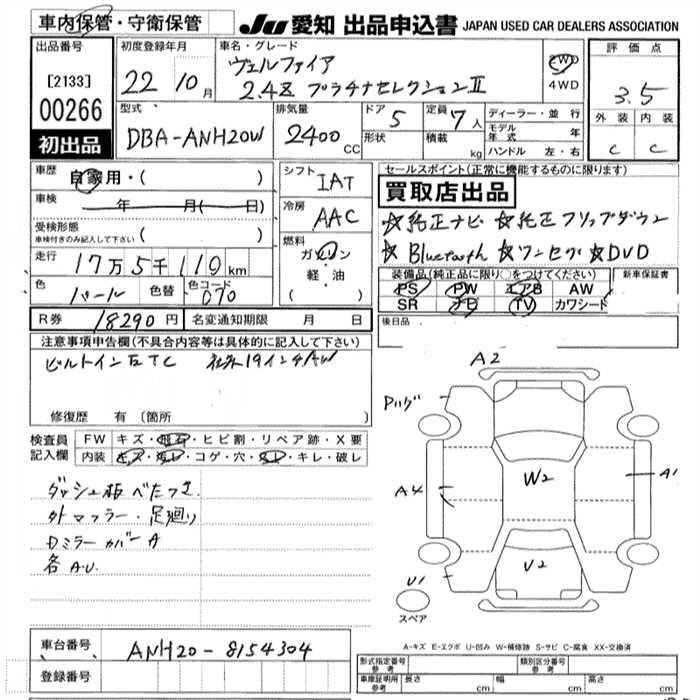 車内保管・守衛保管
JU 愛知 出品申込書 JAPAN USED CAR DEALERS ASSOCIATION
出品番号
[2133]
00266
初出品
初度登録年月
22 10月
車名・グレード
ヴェルファイア
2.4Z プラチナセレクションⅡ
2WD
4WD
評価点
3.5
外装 内装
C C
型式
DBA-ANH20W
排気量
2400 CC
ドア 5
形状
定員 7人
積載 kg
ディーラー・並行
モデル年式 年
ハンドル 左・右
車歴 自家用・( )
車検 年 月( 日)
受検形態
車検付きのみ記入して下さい ( )
走行 17万5千110km
色 パール 色替 色コード 070
シフト IAT
冷房 AAC
燃料 ガソリン
軽・油
( )
セールスポイント(正常に機能するものに限ります)
買取店出品
☆純正ナビ ☆純正フリップダウン
☆Bluetooth ☆ワンセグ ☆DVD
装備品(純正品に限り○をつけてください)
PS PW エアB AW
SR ナビ TV カワシート
新車保証書
後日品
R券 18290円 名変通知期限 月 日
注意事項申告欄(不具合内容等は具体的に記入して下さい)
ビルトインETC 社外19インチAW
修復歴 有 〔箇所 〕
検査員記入欄
FW キズ・飛石・ヒビ割・リペア跡・X要
内装 キズ・汚レ・コゲ・穴・スレ・キレ・破レ
ダッシュ板べたつき
外マフラー・足廻り
Dミラーカバー A
各A.U.
A2
Pハゲ
A4
W2
A1
V2
U1
スペア
A-キズ E-エクボ U-凹み W-補修跡 S-サビ C-腐食 XX-交換済
車台番号 ANH20-8154304
登録番号
型式指定番号 参考
類別区分番号 参考
車庫証明用 参考 長さ cm 幅 cm 高さ cm